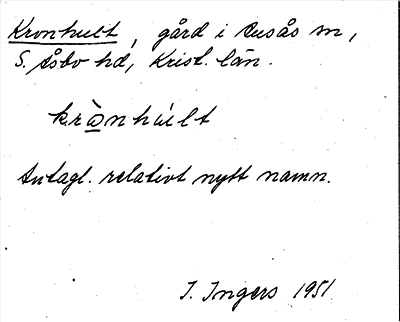 Kronhult, gård i Rusås sn,
S. Åsbo hd, Krist. län.
krònhúlt
Antagl. relativt nytt namn.
I. Ingers 1951